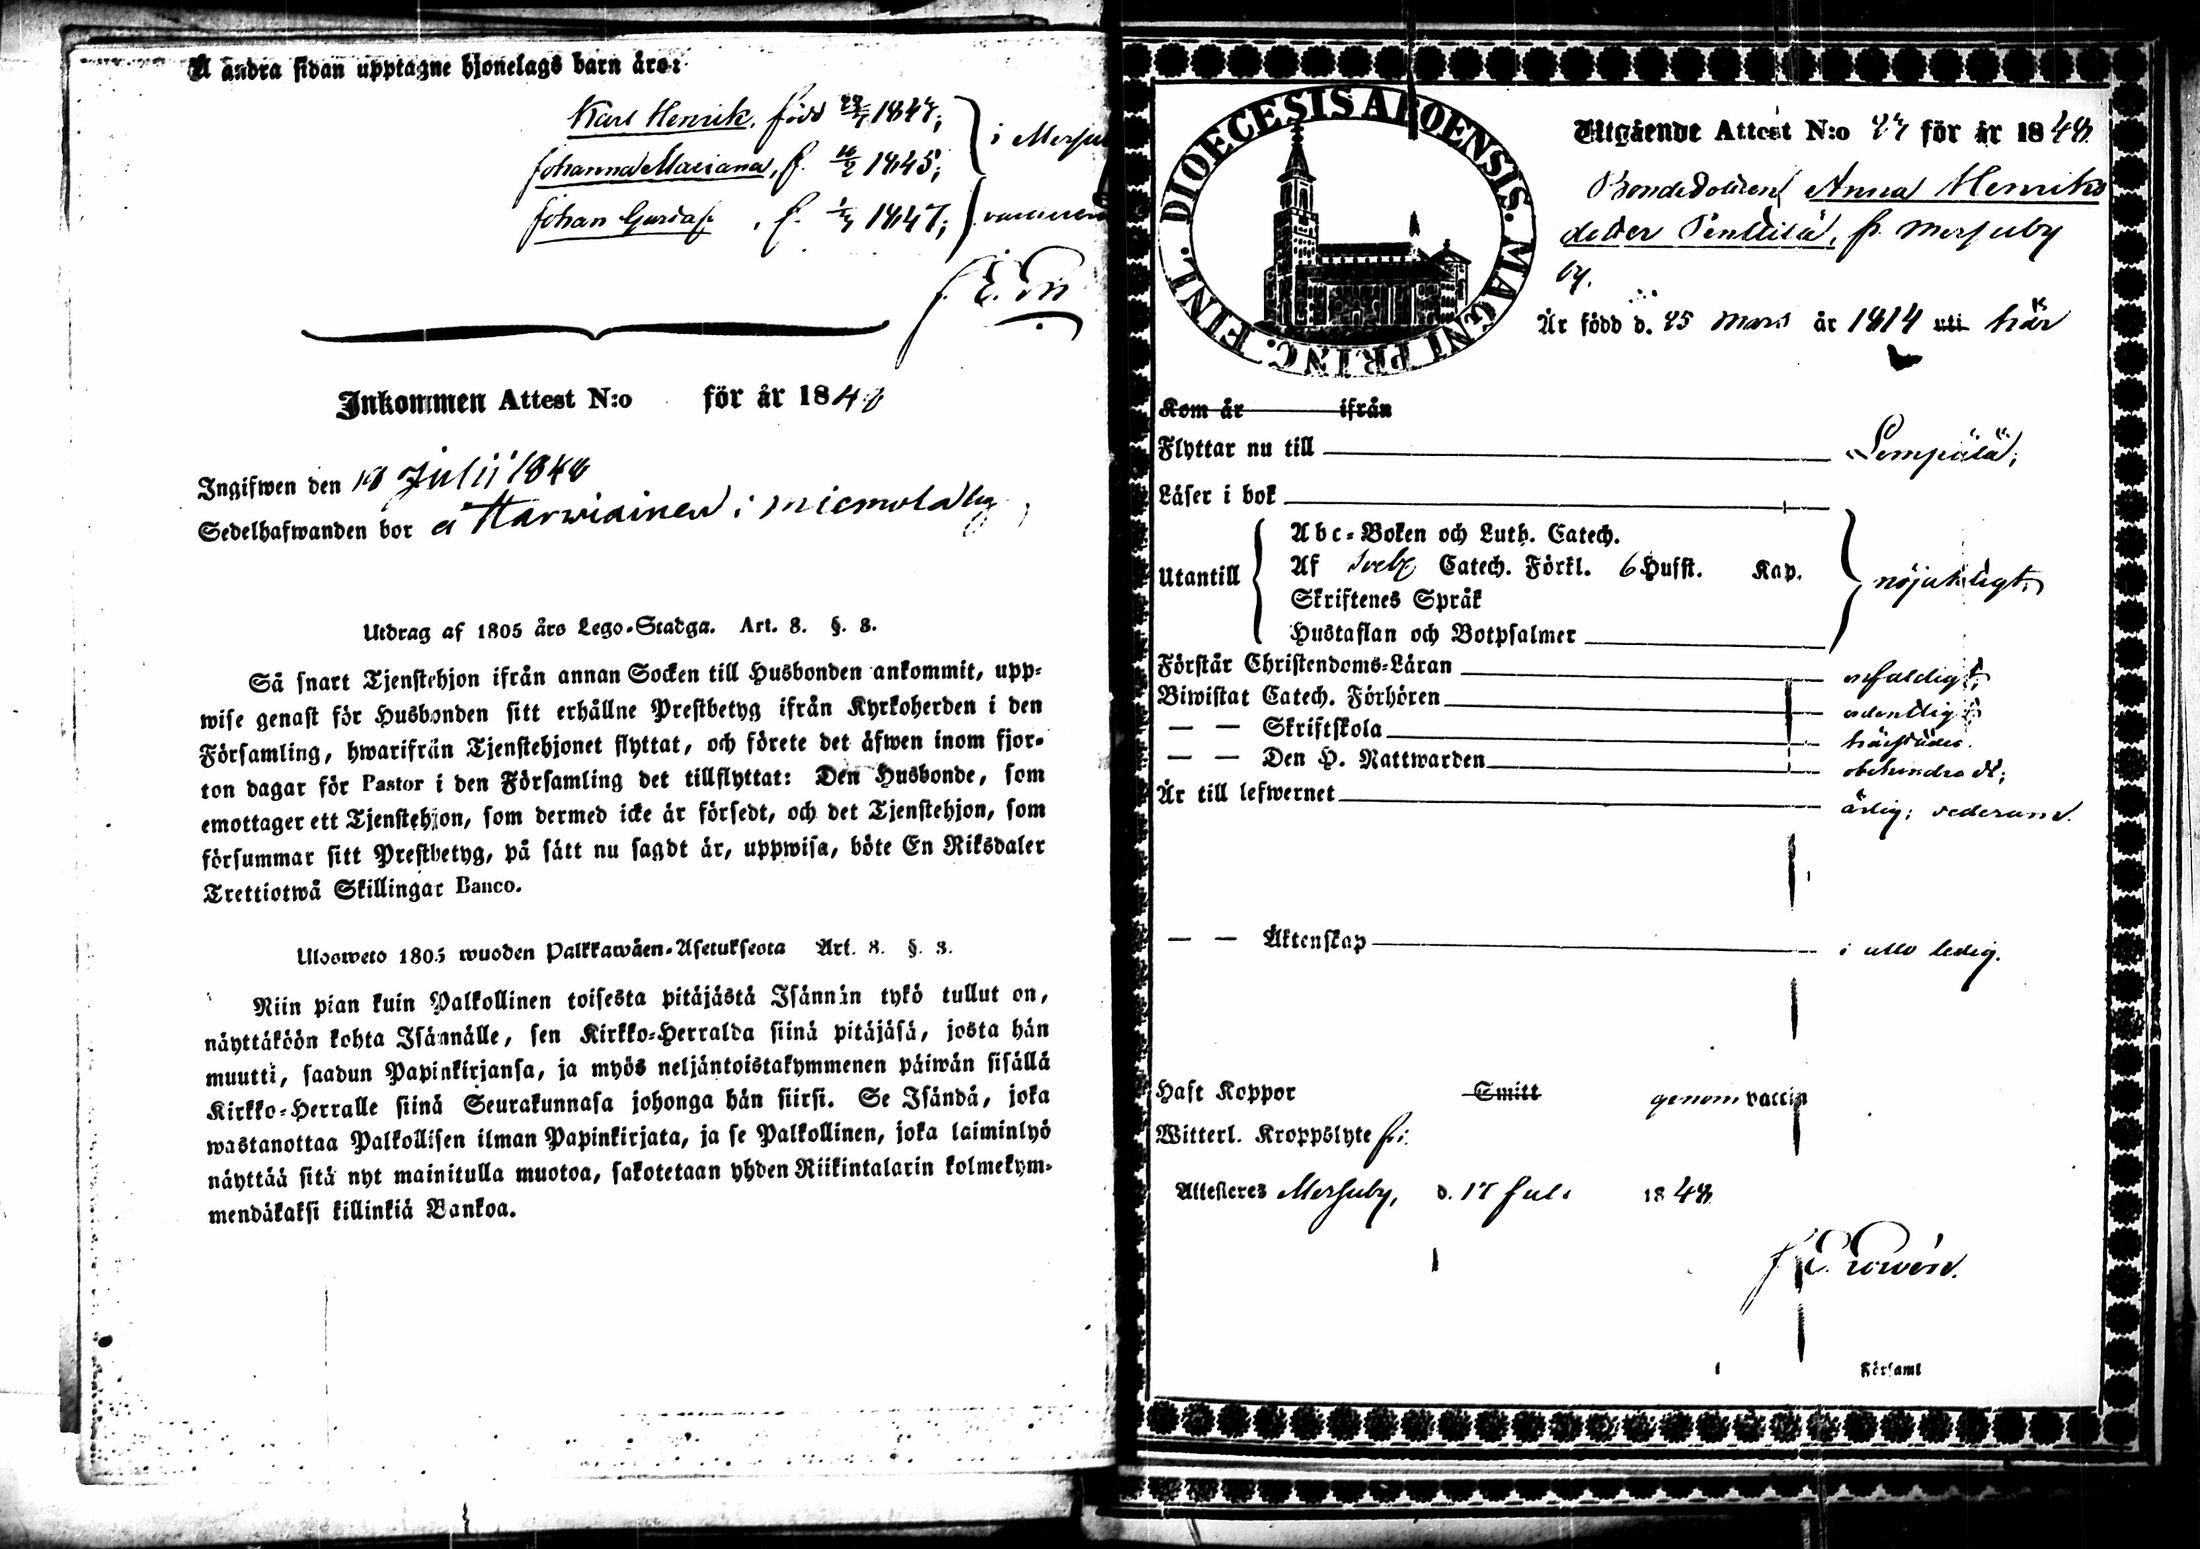 Å andra sidan upptagne hjonelags barn äro:
Karl Henrik, född 1847;
Johanna Mariana, f. 16/2 1845;
Johan Gustaf, f. 1847;
Inkommen Attest N:o för år 1848
Ingifwen den 18 Julii 1848
Sedelhafwanden bor å Harwiainen i by
Utdrag af 1805 års Lego-Stadga. Art. 8. §. 3.
Så snart Tjenstehjon ifrån annan Socken till Husbonden ankommit, upp-
wise genast för Husbonden sitt erhållne Prestbetyg ifrån Kyrkoherden i den
Församling, hwarifrån Tjenstehjonet flyttat, och förete det äfwen inom fjor-
ton dagar för Pastor i den Församling det tillflyttat: Den Husbonde, som
emottager ett Tjenstehjon, som dermed icke är försedt, och det Tjenstehjon, som
försummar sitt Prestbetyg, på sätt nu sagdt är, uppwisa, böte En Riksdaler
Trettiotwå Skillingar Banco.
Ulosweto 1805 wuoden Palkkawäen-Asetuksesta Art. 8. §. 3.
Niin pian kuin Palkollinen toisesta pitäjästä Isännän tykö tullut on,
näyttäköön kohta Isännälle, sen Kirkko-Herralda siinä pitäjäsä, josta hän
muutti, saadun Papinkirjansa, ja myös neljäntoistakymmenen päiwän sisällä
Kirkko-Herralle siinä Seurakunnasa johonga hän siirsi. Se Isändä, joka
wastanottaa Palkollisen ilman Papinkirjata, ja se Palkollinen, joka laiminlyö
näyttää sitä nyt mainitulla muotoa, sakotetaan yhden Riikintalarin kolmekym-
mendäkaksi killinkiä Bankoa.
FINL. DIOECESIS ABOENSIS. MAGNI PRINC.
Utgående Attest N:o 27 för år 1848
Bondedottren Anna Henriks
dotter Penttilä, fr.
by.
Är född d. 25 Mars år 1814 uti här
Kom år ifrån
Flyttar nu till Lempälä;
Läser i bok
Utantill
Abc-Boken och Luth. Catech.
Af Sveb. Catech. Förkl. 6 Hufst. Kap.
Skriftenes Språk
Hustaflan och Botpsalmer
nöjaktligt;
Förstår Christendoms-Läran enfaldigt;
Biwistat Catech. Förhören ordentligt;
— — Skriftskola härstädes.
— — Den H. Nattwarden obehindradt;
Är till lefwernet ärlig;
— — Äktenskap i allo ledig.
Haft Koppor Smitt genom vaccin
Witterl. Kroppslyte fri.
Attesteras d. 17 Juli 1848
Församl